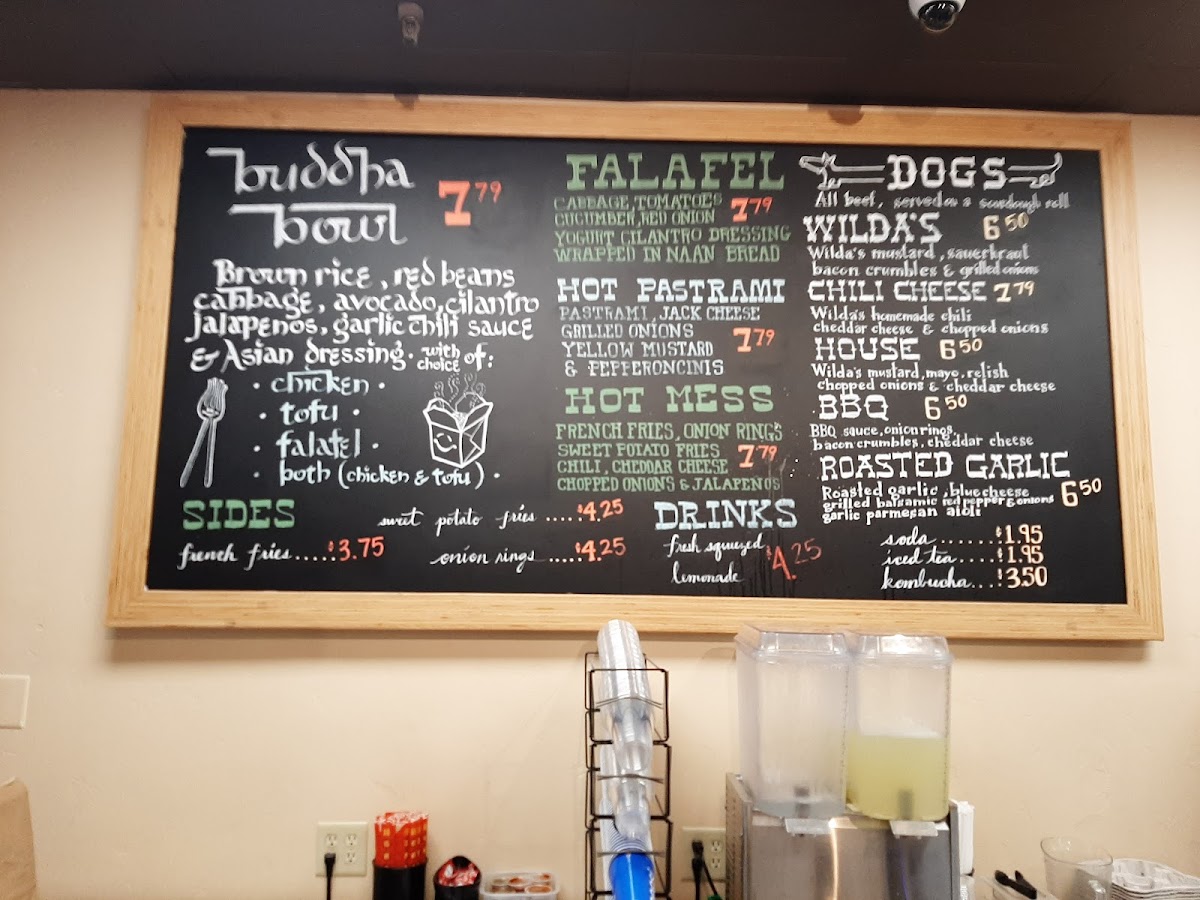 buddha
bowl
7 79
Brown rice, red beans
cabbage, avocado, cilantro
Jalapenos, garlic chili sauce
& Asian dressing. with choice of:
• chicken •
• tofu •
• falafel •
• both (chicken & tofu) •
SIDES
french fries.....$3.75
sweet potato fries.....$4.25
onion rings.....$4.25
FALAFEL
CABBAGE, TOMATOES
CUCUMBER, RED ONION 7 79
YOGURT CILANTRO DRESSING
WRAPPED IN NAAN BREAD
HOT PASTRAMI
PASTRAMI, JACK CHEESE
GRILLED ONIONS
YELLOW MUSTARD 7 79
& PEPPERONCINIS
HOT MESS
FRENCH FRIES, ONION RINGS
SWEET POTATO FRIES
CHILI, CHEDDAR CHEESE 7 79
CHOPPED ONIONS & JALAPENOS
DRINKS
fresh squeezed
lemonade $4.25
DOGS
All beef, served on a sourdough roll
WILDA'S 6 50
Wilda's mustard, sauerkraut
bacon crumbles & grilled onions
CHILI CHEESE 7 79
Wilda's homemade chili
cheddar cheese & chopped onions
HOUSE 6 50
Wilda's mustard, mayo, relish
chopped onions & cheddar cheese
BBQ 6 50
BBQ sauce, onion rings,
bacon crumbles, cheddar cheese
ROASTED GARLIC
Roasted garlic, blue cheese 6 50
grilled balsamic red pepper & onions
garlic parmesan aioli
soda......$1.95
iced tea....$1.95
kombucha...$3.50